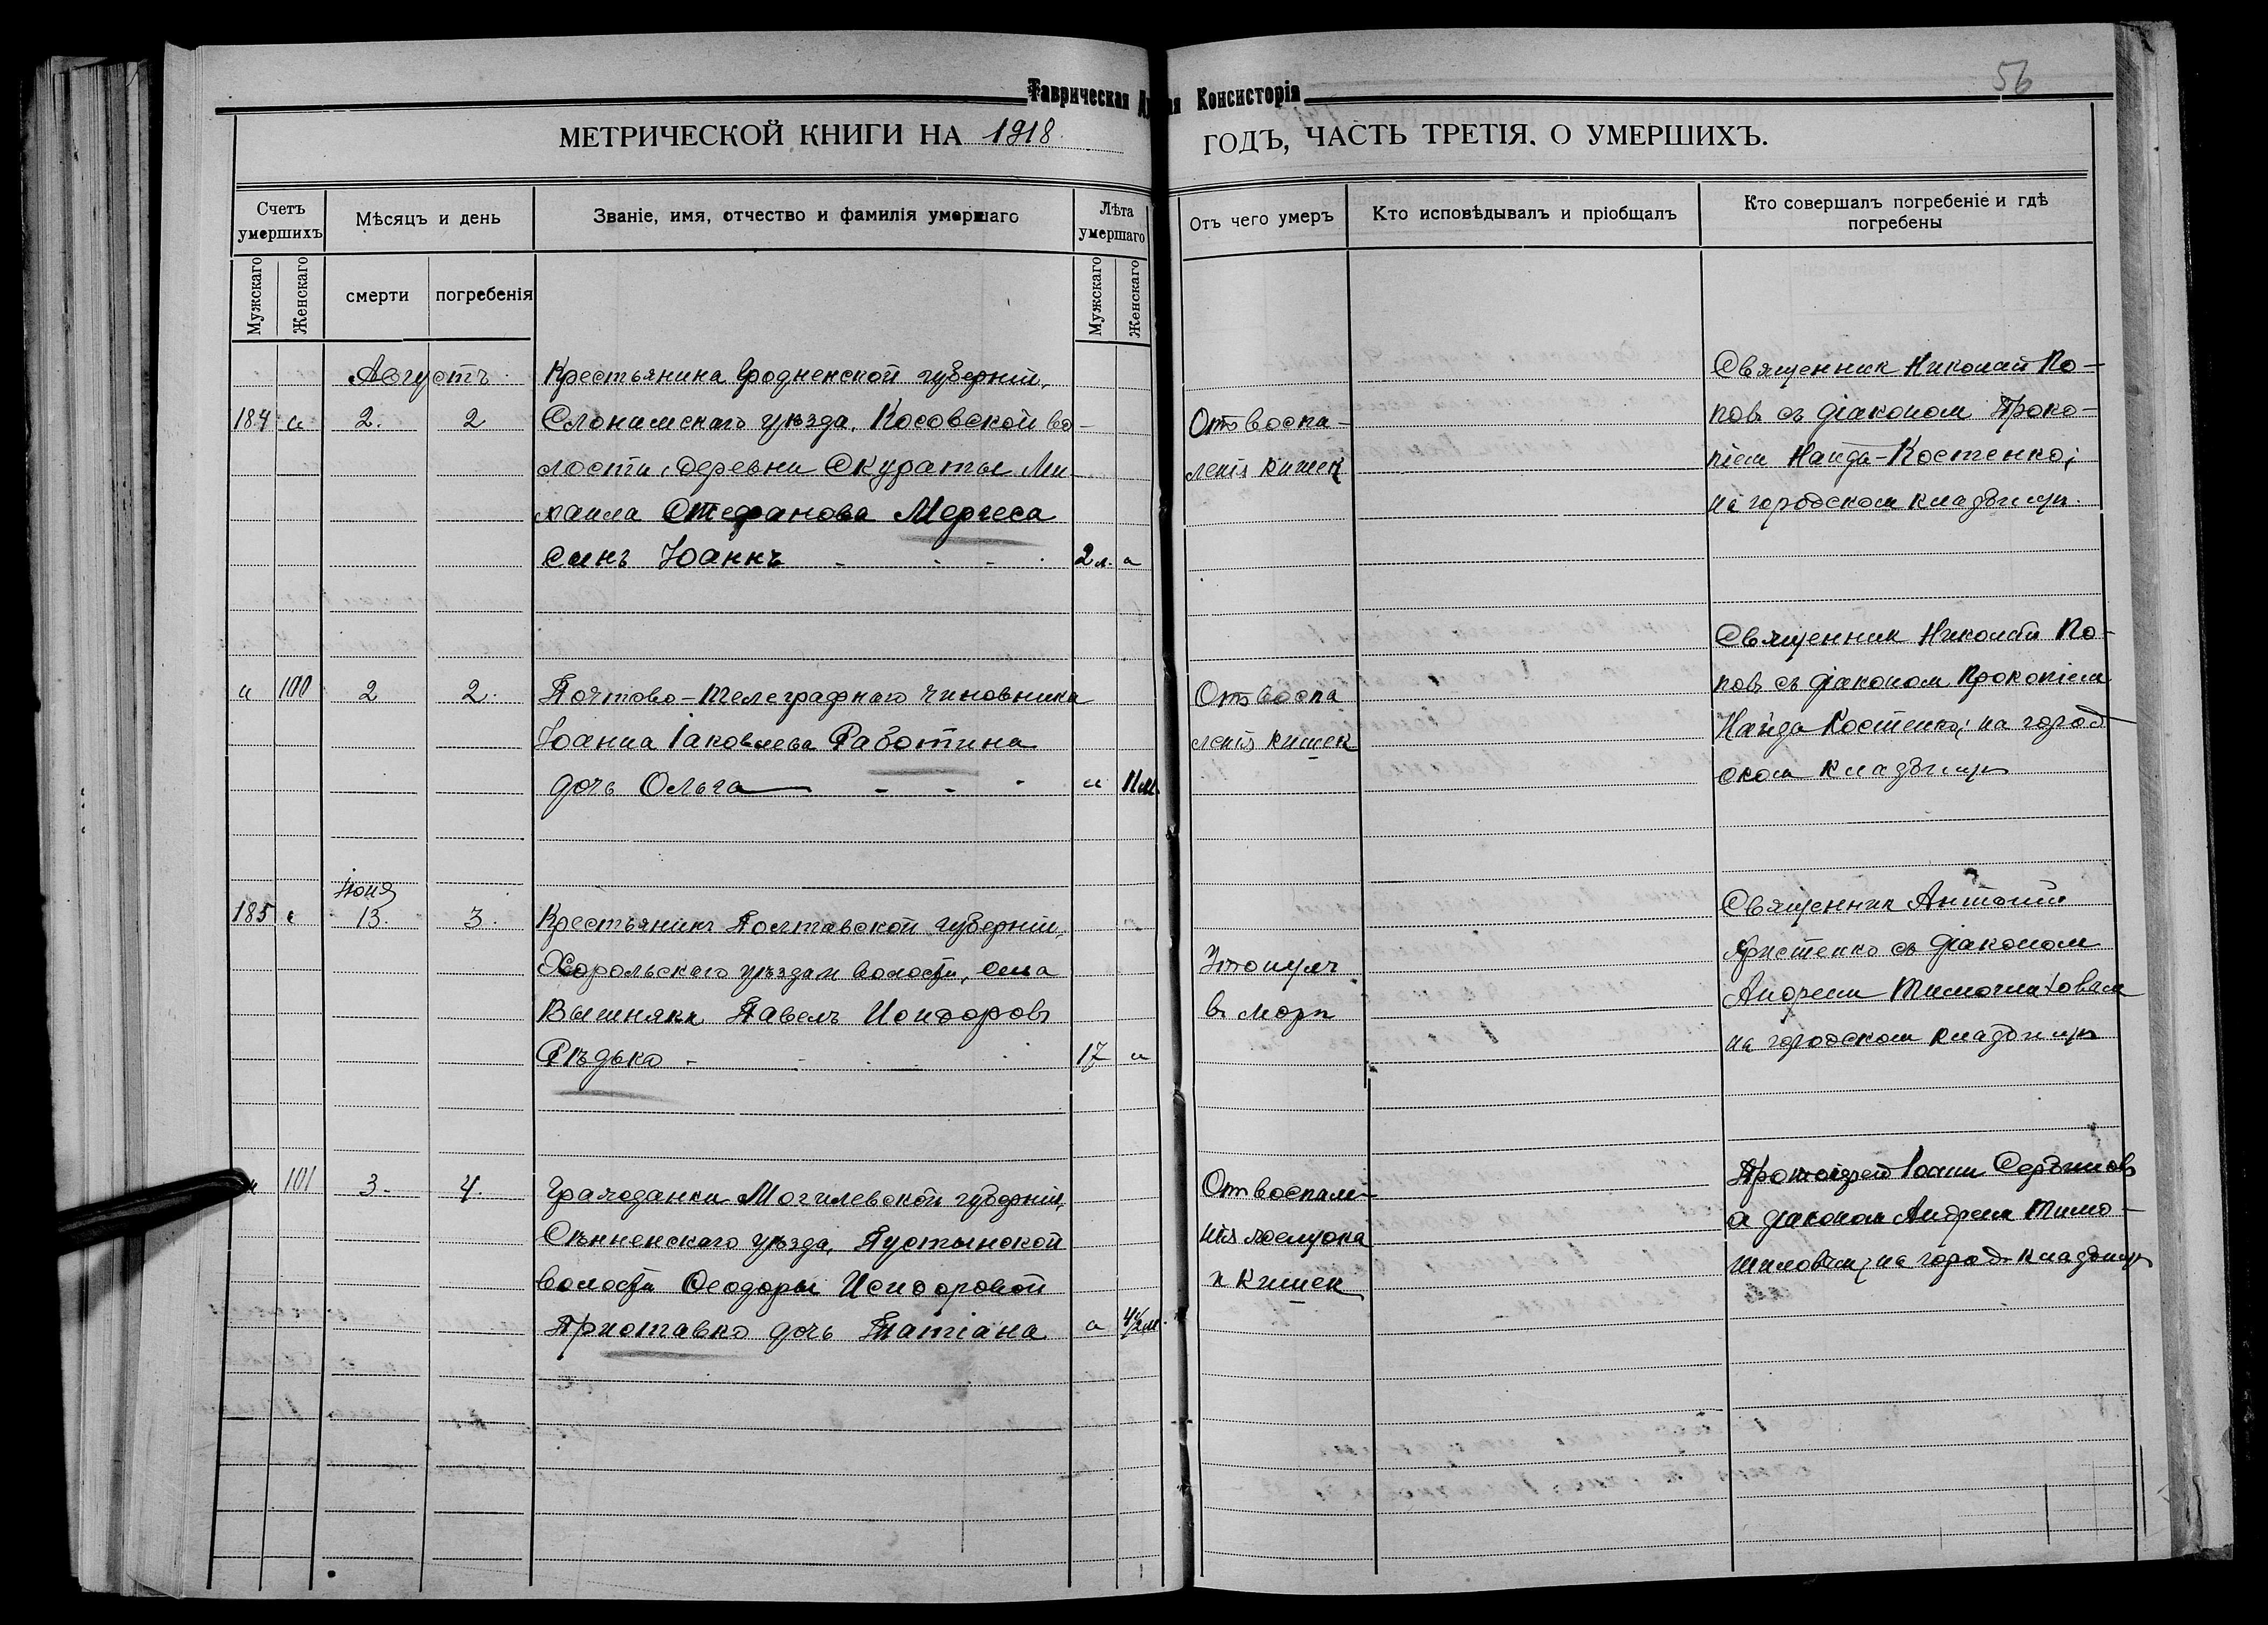 56
Таврическая
Консисторія
МЕТРИЧЕСКОЙ КНИГИ НА 1918 ГОДЪ, ЧАСТЬ ТРЕТІЯ. О УМЕРШИХЪ.
Счетъ умершихъ
Мужскаго
Женскаго
Мѣсяцъ и день
смерти
погребенія
Званіе, имя, отчество и фамилія умершаго
Лѣта умершаго
Мужскаго
Женскаго
Отъ чего умеръ
Кто исповѣдывалъ и пріобщалъ
Кто совершалъ погребеніе и гдѣ погребены
Августъ
184 „ 2. 2
Крестьянина Гродненской губерніи,
Слонимскаго уѣзда, Косовской во-
лости, деревни Скураты Ми-
хаила Стефанова Мергеса
сынъ Іоаннъ 2 л. „
Отъ воспа-
ленія кишек
Священник Николай По-
повъ съ діаконом Проко-
піем Найда-Костенко;
на городском кладбищѣ.
„ 100 2 2.
Почтово-телеграфнаго чиновника
Іоанна Іаковлева Работина
дочь Ольга „ 11 м.
Отъ воспа
ленія кишек
Священник Николай По-
повъ съ діаконом Прокопіем
Найда Костенко; на город
ском кладбищѣ
Іюня
185 „ 13. 3.
Крестьянинъ Полтавской губерніи,
Хорольскаго уѣзда и волости, села
Вишняки Павелъ Исидоровъ
Рѣдько 17 „
Утонулъ
въ морѣ
Священник Антоній
съ діаконом
Андреем
на городском кладбищѣ
„ 101 3. 4.
Гражданки Могилевской губерніи,
Сѣнненскаго уѣзда, Пустынской
волости Ѳеодоры Исидоровой
Приставко дочь Татіана „ 4½ м.
От воспале-
нія желудка
и кишек
Протоіерей Іоанн
с діаконом Андреем Тимо-
шиловым; на город. кладбищѣ